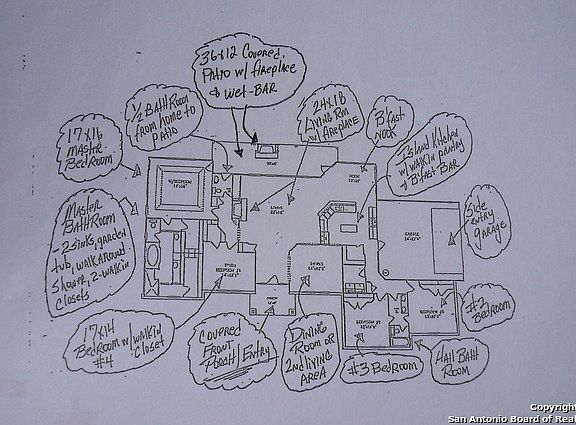 36x12 Covered
PATIO w/ fireplace
& wet-BAR
1/2 BATHROOM
from home to
PATIO
24x18
LIVING RM
w/ fireplace
B'fast
NOOK
Island Kitchen
w/ walkin pantry
& B'fast BAR
17x16
MASTER
BEDROOM
MASTER
BATHROOM
- 2 sinks, garden
tub, walk around
shower, 2-walkin
closets
Side
entry
garage
LIVING
GARAGE
17x14
BEDROOM w/ walkin
#4 closet
COVERED
FRONT
PORCH/Entry
DINING
ROOM OR
2nd living
AREA
#3 BEDROOM
Hall BATH
ROOM
#2
BEDROOM
Copyright
San Antonio Board of Real